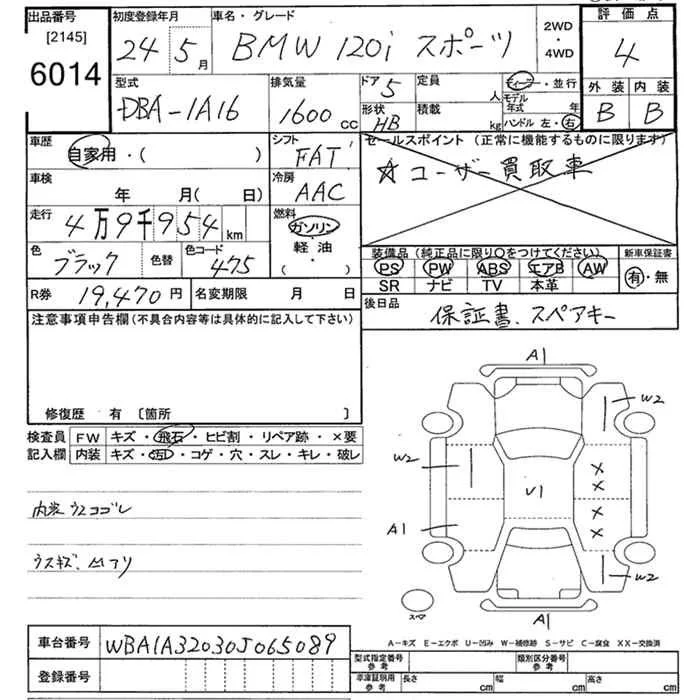 出品番号 初度登録年月 車名・グレード 2WD・4WD 評価点
[2145]
6014
24 5月 BMW 120i スポーツ 4
型式 排気量 ドア 定員 ディーラー・並行 外装 内装
DBA-1A16 1600cc 5 人 モデル年式 年 B B
形状 積載
HB kg ハンドル 左・右
車歴 シフト セールスポイント (正常に機能するものに限ります)
自家用・( ) FAT ☆ユーザー買取車
車検 冷房
年 月( 日) AAC
走行 燃料
4万9千954km ガソリン
軽油
( ・ )
装備品 (純正品に限り○をつけてください) 新車保証書
色 色替 色コード PS PW ABS エアB AW 有・無
ブラック 475 SR ナビ TV 本革
R券 19,470円 名変期限 月 日 後日品
保証書、スペアキー
注意事項申告欄(不具合内容等は具体的に記入して下さい)
修復歴 有 〔箇所 〕
検査員 FW キズ・飛石・ヒビ割・リペア跡・×要
記入欄 内装 キズ・汚・コゲ・穴・スレ・キレ・破レ
内装ウスヨゴレ
ウスキズ、凹アリ
A1
W2
W2
X
X
U1
X
X
A1
W2
スペア
A1
A-キズ E-エクボ U-凹み W-補修跡 S-サビ C-腐食 XX-交換済
車台番号 WBA1A32030J065089
登録番号
型式指定番号 参考 類別区分番号 参考
車庫証明用 参考 長さ cm 幅 cm 高さ cm